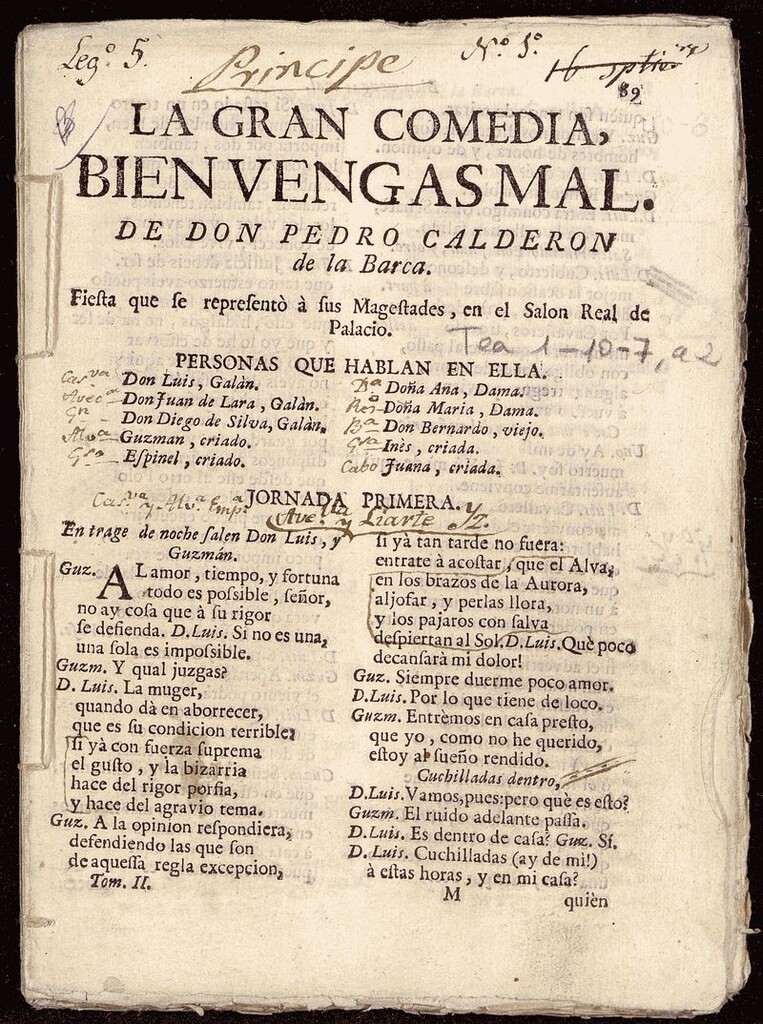 Leg.º 5.
Principe
N.º 1.º
16 sptire
89
LA GRAN COMEDIA,
BIEN VENGAS MAL.
DE DON PEDRO CALDERON
de la Barca.
Fiesta que se representò à sus Magestades, en el Salon Real de
Palacio.
Tea 1-10-7, a2
PERSONAS QUE HABLAN EN ELLA.
Don Luis, Galàn.
Don Juan de Lara, Galàn.
Don Diego de Silva, Galàn.
Guzman, criado.
Espinel, criado.
Dª Doña Ana, Dama.
Doña Maria, Dama.
Bª Don Bernardo, viejo.
Inès, criada.
Cabo Juana, criada.
JORNADA PRIMERA.
y Liarte
En trage de noche salen Don Luis, y
Guzmán.
Guz. AL amor, tiempo, y fortuna
todo es possible, señor,
no ay cosa que à su rigor
se defienda. D.Luis. Si no es una,
una sola es impossible.
Guzm. Y qual juzgas?
D. Luis. La muger,
quando dà en aborrecer,
que es su condicion terrible;
si yà con fuerza suprema
el gusto, y la bizarria
hace del rigor porfia,
y hace del agravio tema.
Guz. A la opinion respondiera,
defendiendo las que son
de aquessa regla excepcion,
Tom. II.
si yà tan tarde no fuera:
entrate à acostar, que el Alva,
en los brazos de la Aurora,
aljofar, y perlas llora,
y los pajaros con salva
despiertan al Sol. D.Luis. Què poco
decansarà mi dolor!
Guz. Siempre duerme poco amor.
D.Luis. Por lo que tiene de loco.
Guzm. Entrèmos en casa presto,
que yo, como no he querido,
estoy al sueño rendido.
Cuchilladas dentro,
D.Luis. Vamos, pues: pero què es esto?
Guzm. El ruido adelante passa.
D.Luis. Es dentro de casa? Guz. Sí.
D. Luis. Cuchilladas (ay de mi!)
à estas horas, y en mi casa?
M
quièn